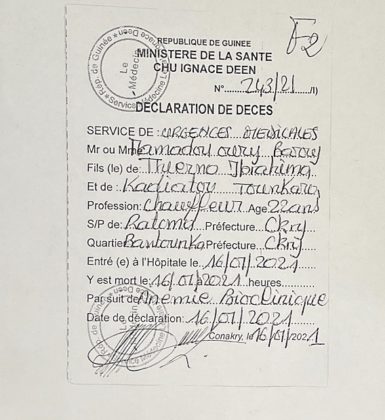 F2
REPUBLIQUE DE GUINEE
MINISTERE DE LA SANTE
CHU IGNACE DEEN
N°.......243/21....../)
DECLARATION DE DECES
SERVICE DE : URGENCES MEDICALES
Mr ou Mme Mamadou oury Barry
Fils (le) de: Thierno Ibrahima
Et de : Kadiatou Tounkara
Profession: Chauffeur Age 22ans
S/P de: Ratoma Préfecture: Ckry
Quartier Bantounka Préfecture: Ckry
Entré (e) à l'Hôpitale le 16/07/2021
Y est mort le: 16/07 à 2021 heures
Par suit de Anemie Bioclinique
Date de déclaration: 16/07/2021
Conakry, le 16/07/2021
Rép. de Guinée
Le Médecin